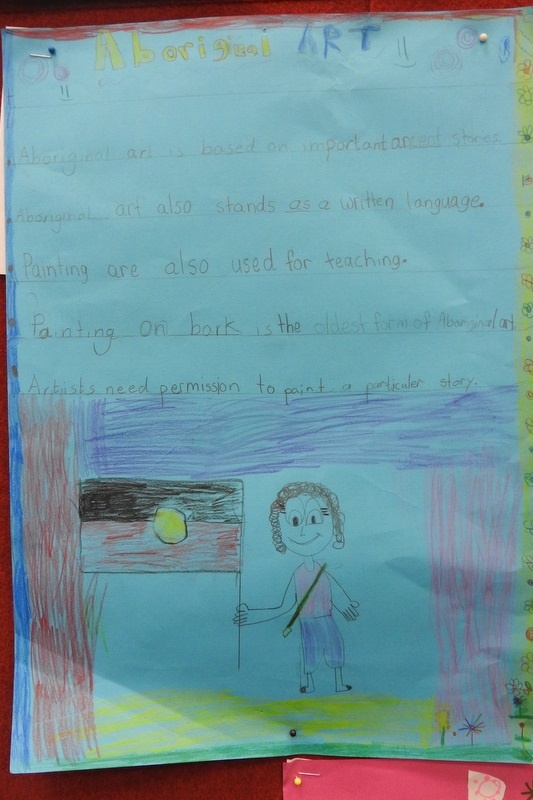 Aboriginal ART
Aboriginal art is based on important ancent stories.
Aboriginal art also stands as a written language.
Painting are also used for teaching.
Painting on bark is the oldest form of Aboriginal art.
Artists need permission to paint a particuler story.